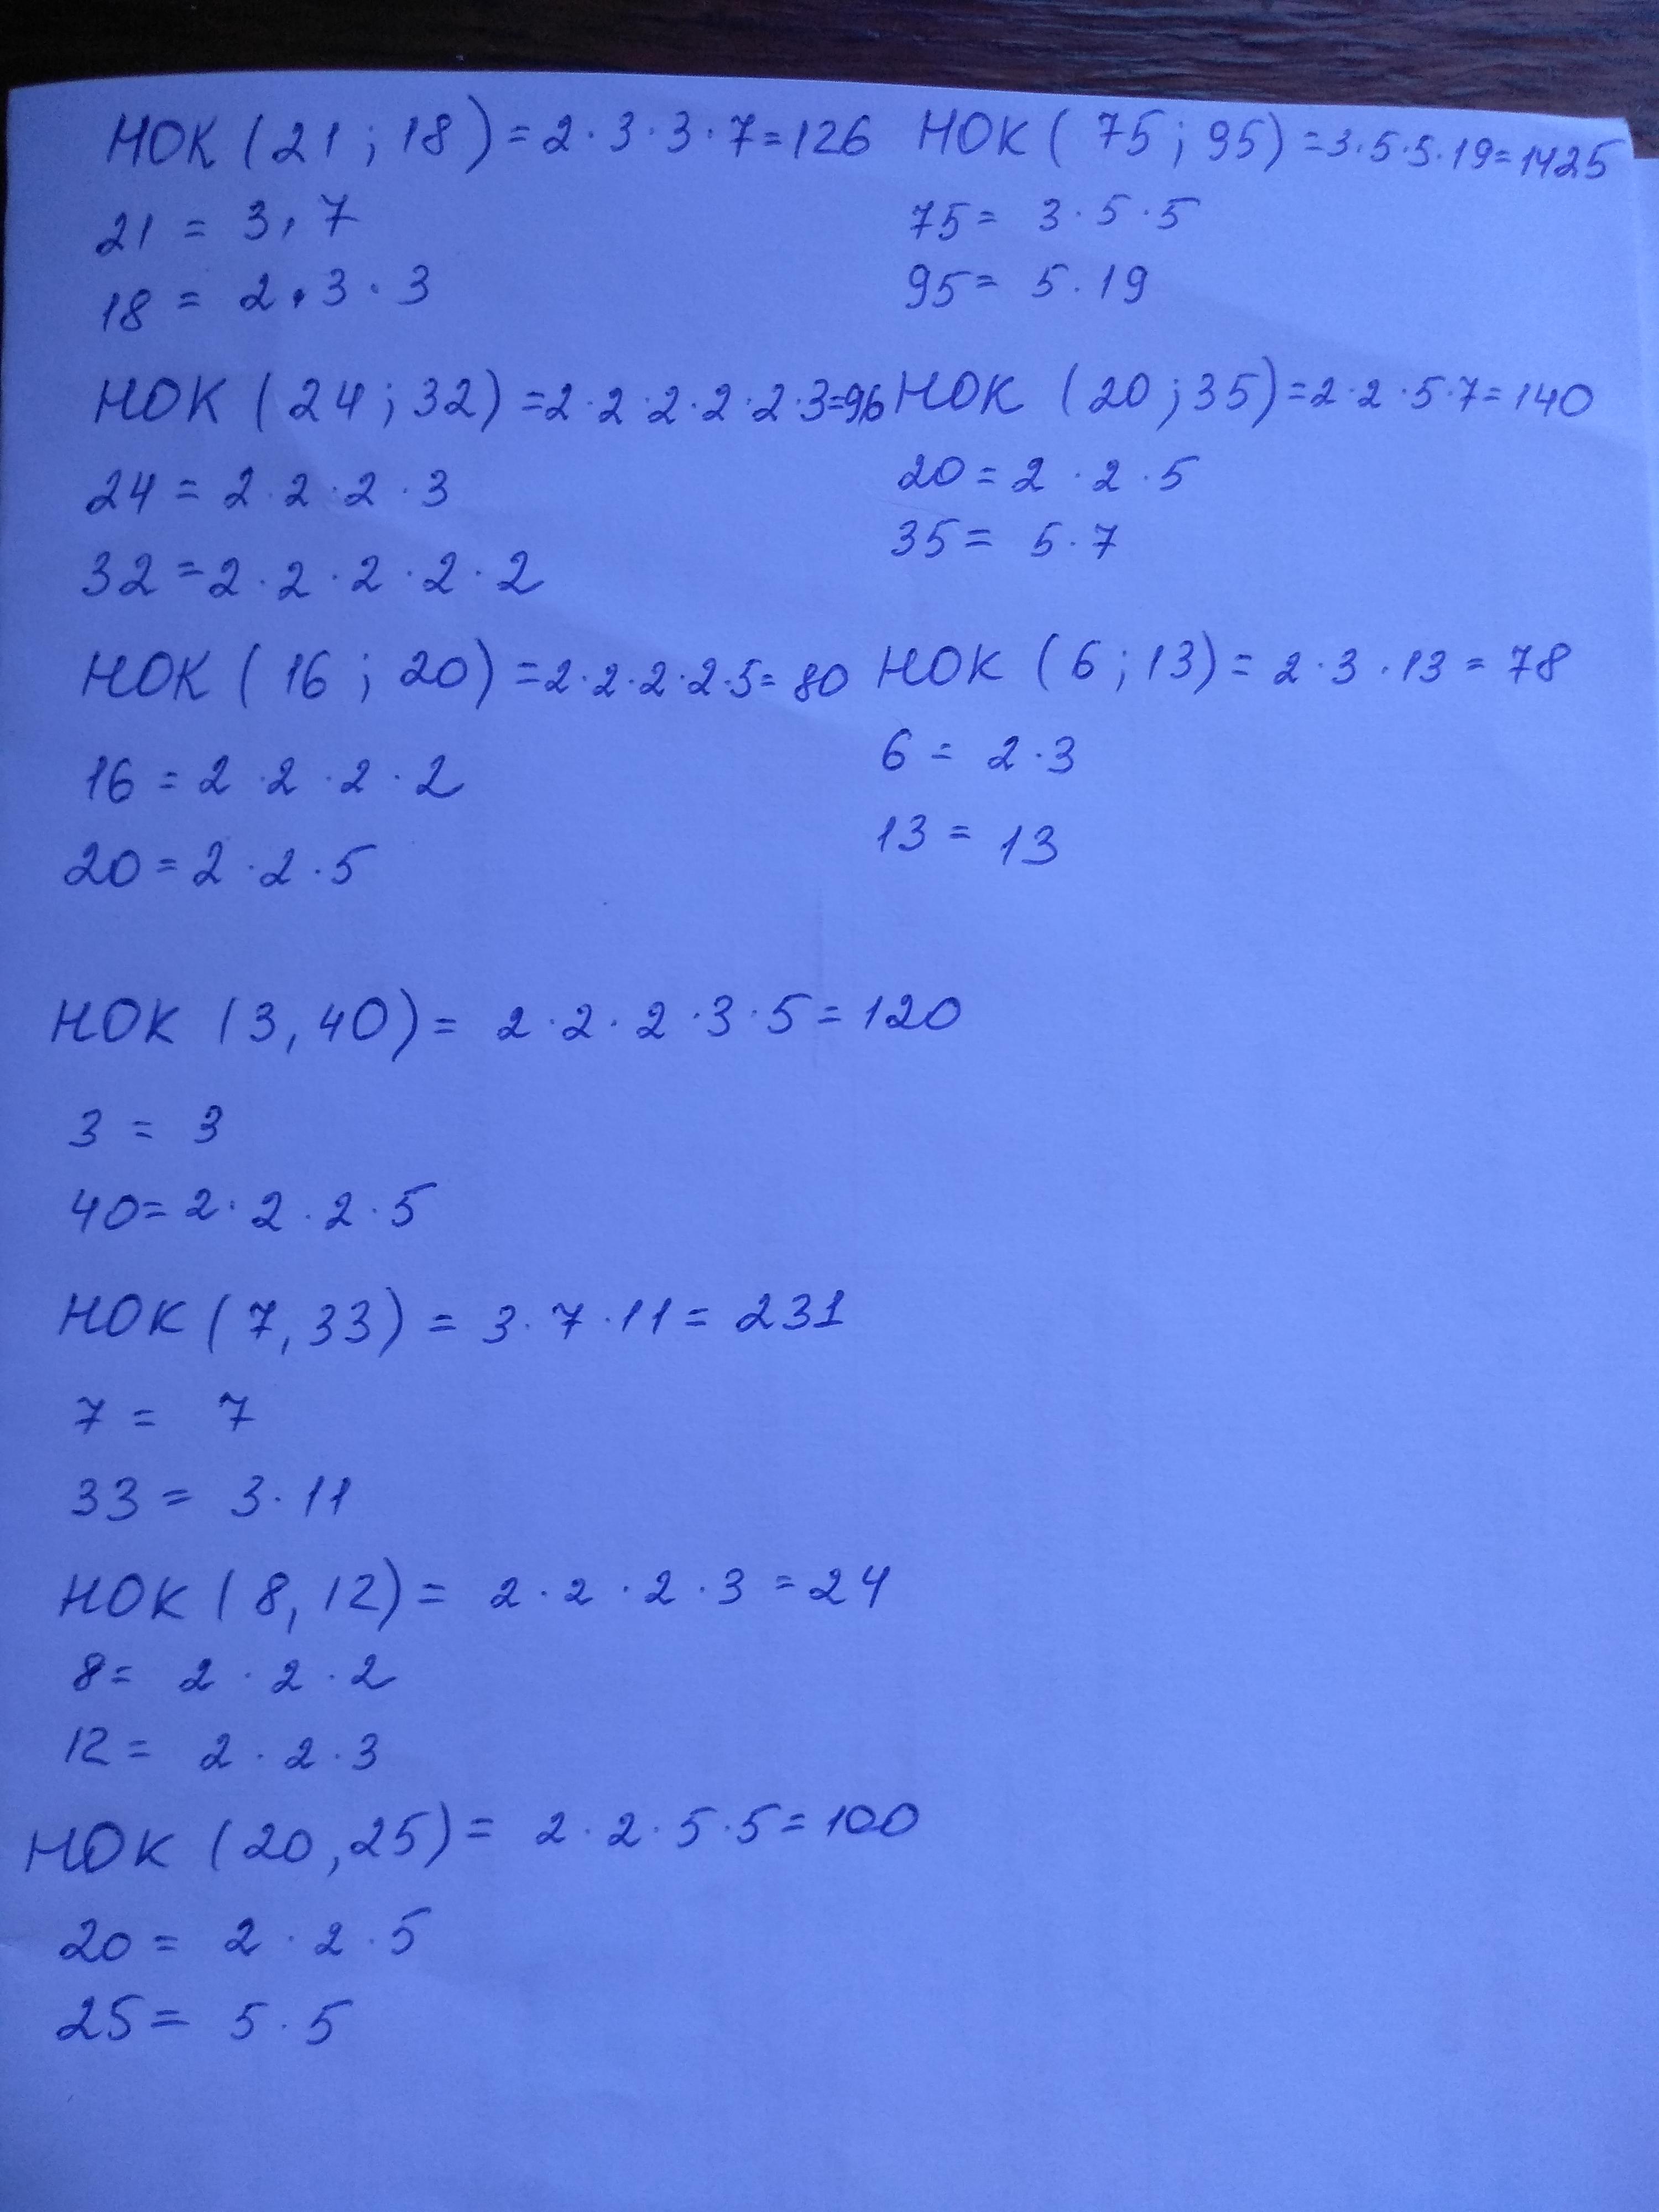 НОК (21; 18) = 2·3·3·7=126
21 = 3·7
18 = 2·3·3
НОК (75; 95) = 3·5·5·19=1425
75= 3·5·5
95= 5·19
НОК (24; 32) =2·2·2·2·2·3=96
24 = 2·2·2·3
32 =2·2·2·2·2
НОК (20; 35) =2·2·5·7=140
20 = 2·2·5
35= 5·7
НОК (16; 20) =2·2·2·2·5= 80
16 = 2·2·2·2
20= 2·2·5
НОК (6; 13) = 2·3·13 = 78
6 = 2·3
13 = 13
НОК (3, 40) = 2·2·2·3·5=120
3 = 3
40=2·2·2·5
НОК (7, 33) = 3·7·11= 231
7 = 7
33 = 3·11
НОК (8, 12) = 2·2·2·3 =24
8= 2·2·2
12= 2·2·3
НОК (20, 25) = 2·2·5·5=100
20= 2·2·5
25= 5·5